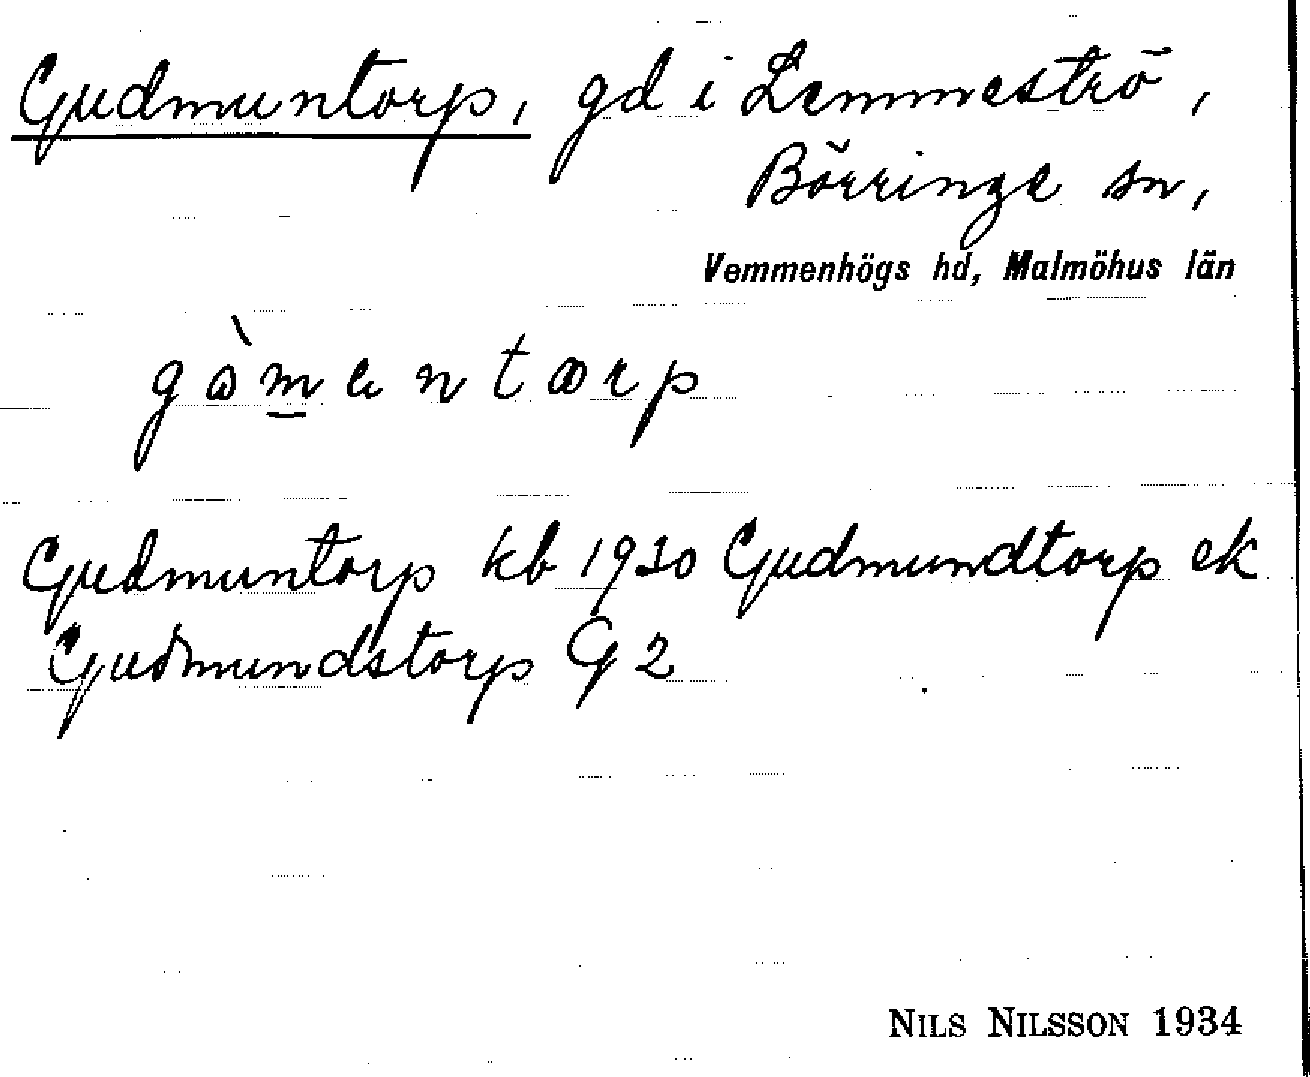 Gudmuntorp, gd i Lemmeströ,
Börringe sn,
Vemmenhögs hd, Malmöhus län
gòmentɶrp
Gudmuntorp kb 1930 Gudmundtorp ek
Gudmundstorp G2
NILS NILSSON 1934